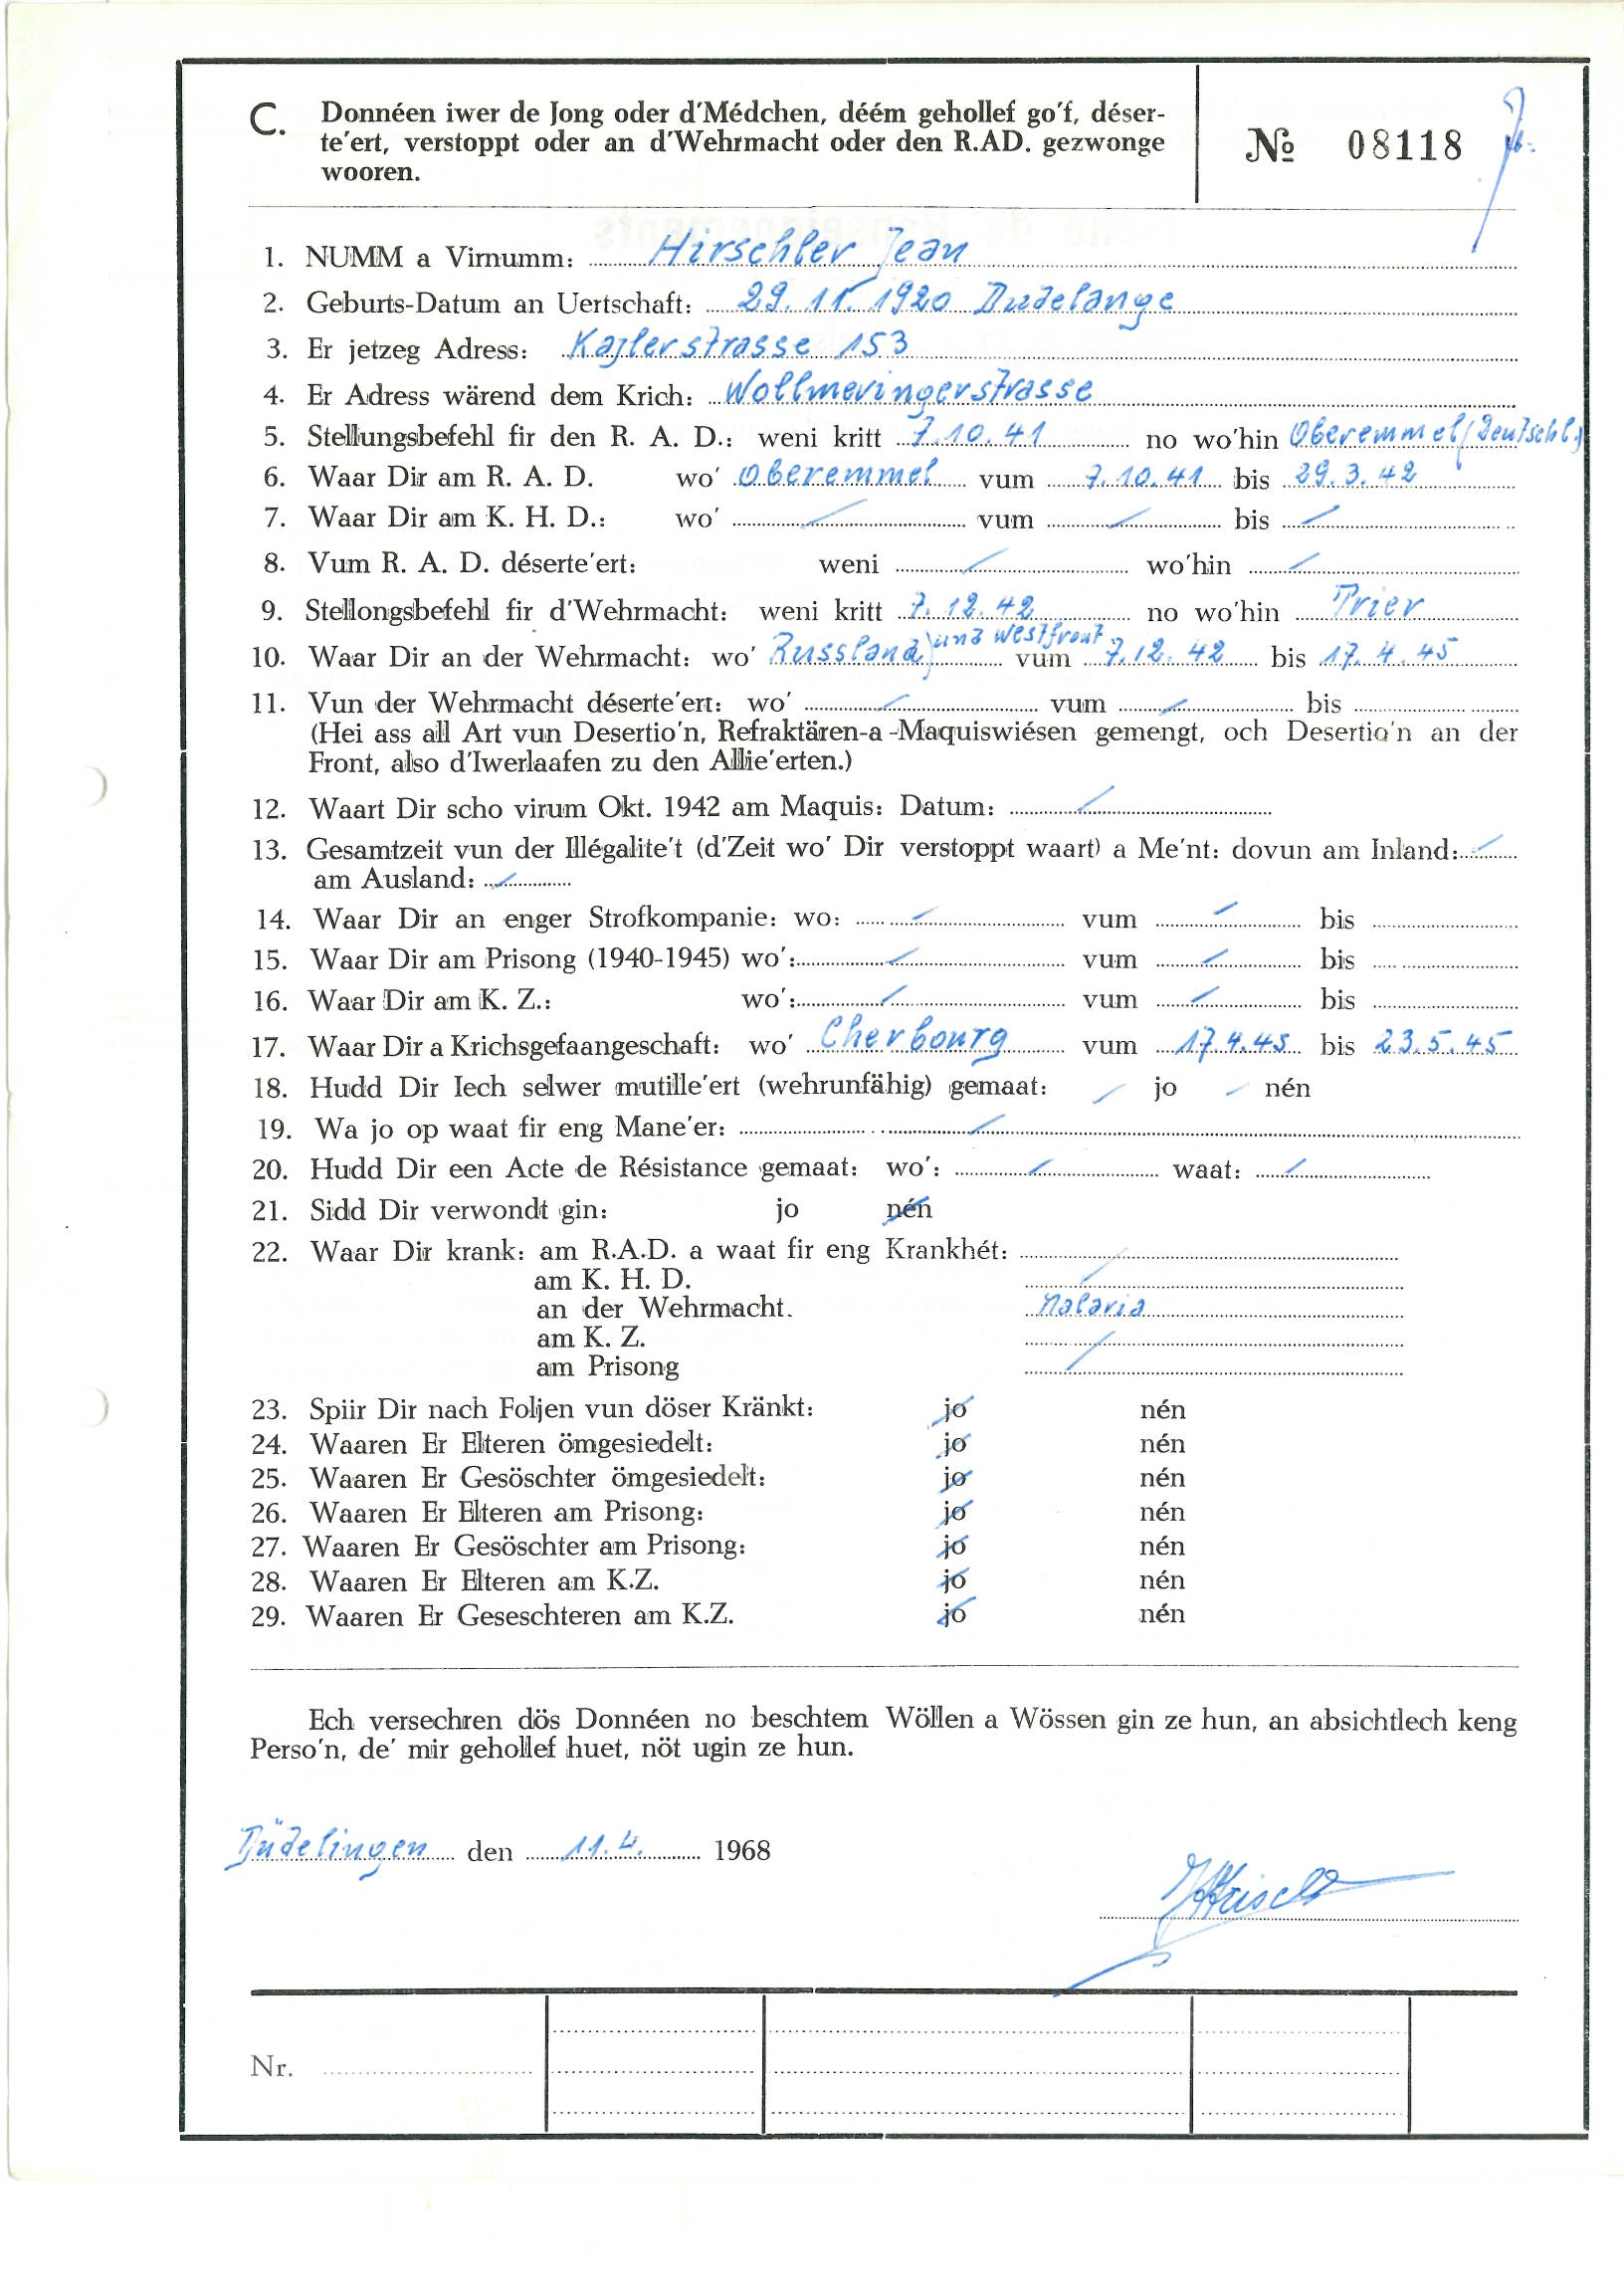 C. Donnéen iwer de Jong oder d'Médchen, déém gehollef go'f, déser-
te'ert, verstoppt oder an d'Wehrmacht oder den R.AD. gezwonge
wooren.
№ 08118
1. NUMM a Virnumm: Hirschler Jean
2. Geburts-Datum an Uertschaft: 29.11.1920 Dudelange
3. Er jetzeg Adress: Kaylerstrasse 153
4. Er Adress wärend dem Krich: Wollmeringerstrasse
5. Stellungsbefehl fir den R. A. D.: weni kritt 7.10.41 no wo'hin Oberemmel (Deutschl.)
6. Waar Dir am R. A. D. wo' Oberemmel vum 7.10.41 bis 29.3.42
7. Waar Dir am K. H. D.: wo' / vum / bis /
8. Vum R. A. D. déserte'ert: weni / wo'hin /
9. Stellongsbefehl fir d'Wehrmacht: weni kritt 7.12.42 no wo'hin Trier
10. Waar Dir an der Wehrmacht: wo' Russland und Westfront vum 7.12.42 bis 17.4.45
11. Vun der Wehrmacht déserte'ert: wo' / vum / bis
(Hei ass all Art vun Desertio'n, Refraktären-a-Maquiswiésen gemengt, och Desertio'n an der
Front, also d'Iwerlaafen zu den Allie'erten.)
12. Waart Dir scho virum Okt. 1942 am Maquis: Datum: /
13. Gesamtzeit vun der Illégalite't (d'Zeit wo' Dir verstoppt waart) a Me'nt: dovun am Inland: /
am Ausland: /
14. Waar Dir an enger Strofkompanie: wo: / vum / bis
15. Waar Dir am Prisong (1940-1945) wo': / vum / bis
16. Waar Dir am K. Z.: wo': / vum / bis
17. Waar Dir a Krichsgefaangeschaft: wo' Cherbourg vum 17.4.45 bis 23.5.45
18. Hudd Dir Iech selwer mutille'ert (wehrunfähig) gemaat: / jo / nén
19. Wa jo op waat fir eng Mane'er: /
20. Hudd Dir een Acte de Résistance gemaat: wo': / waat: /
21. Sidd Dir verwondt gin: jo nén
22. Waar Dir krank: am R.A.D. a waat fir eng Krankhét:
am K. H. D. /
an der Wehrmacht. Malaria
am K. Z.
am Prisong /
23. Spiir Dir nach Foljen vun döser Kränkt: jo nén
24. Waaren Er Elteren ömgesiedelt: jo nén
25. Waaren Er Gesöschter ömgesiedelt: jo nén
26. Waaren Er Elteren am Prisong: jo nén
27. Waaren Er Gesöschter am Prisong: jo nén
28. Waaren Er Elteren am K.Z. jo nén
29. Waaren Er Geseschteren am K.Z. jo nén
Ech versechren dös Donnéen no beschtem Wöllen a Wössen gin ze hun, an absichtlech keng
Perso'n, de' mir gehollef huet, nöt ugin ze hun.
Düdelingen den 11.4. 1968
Nr.